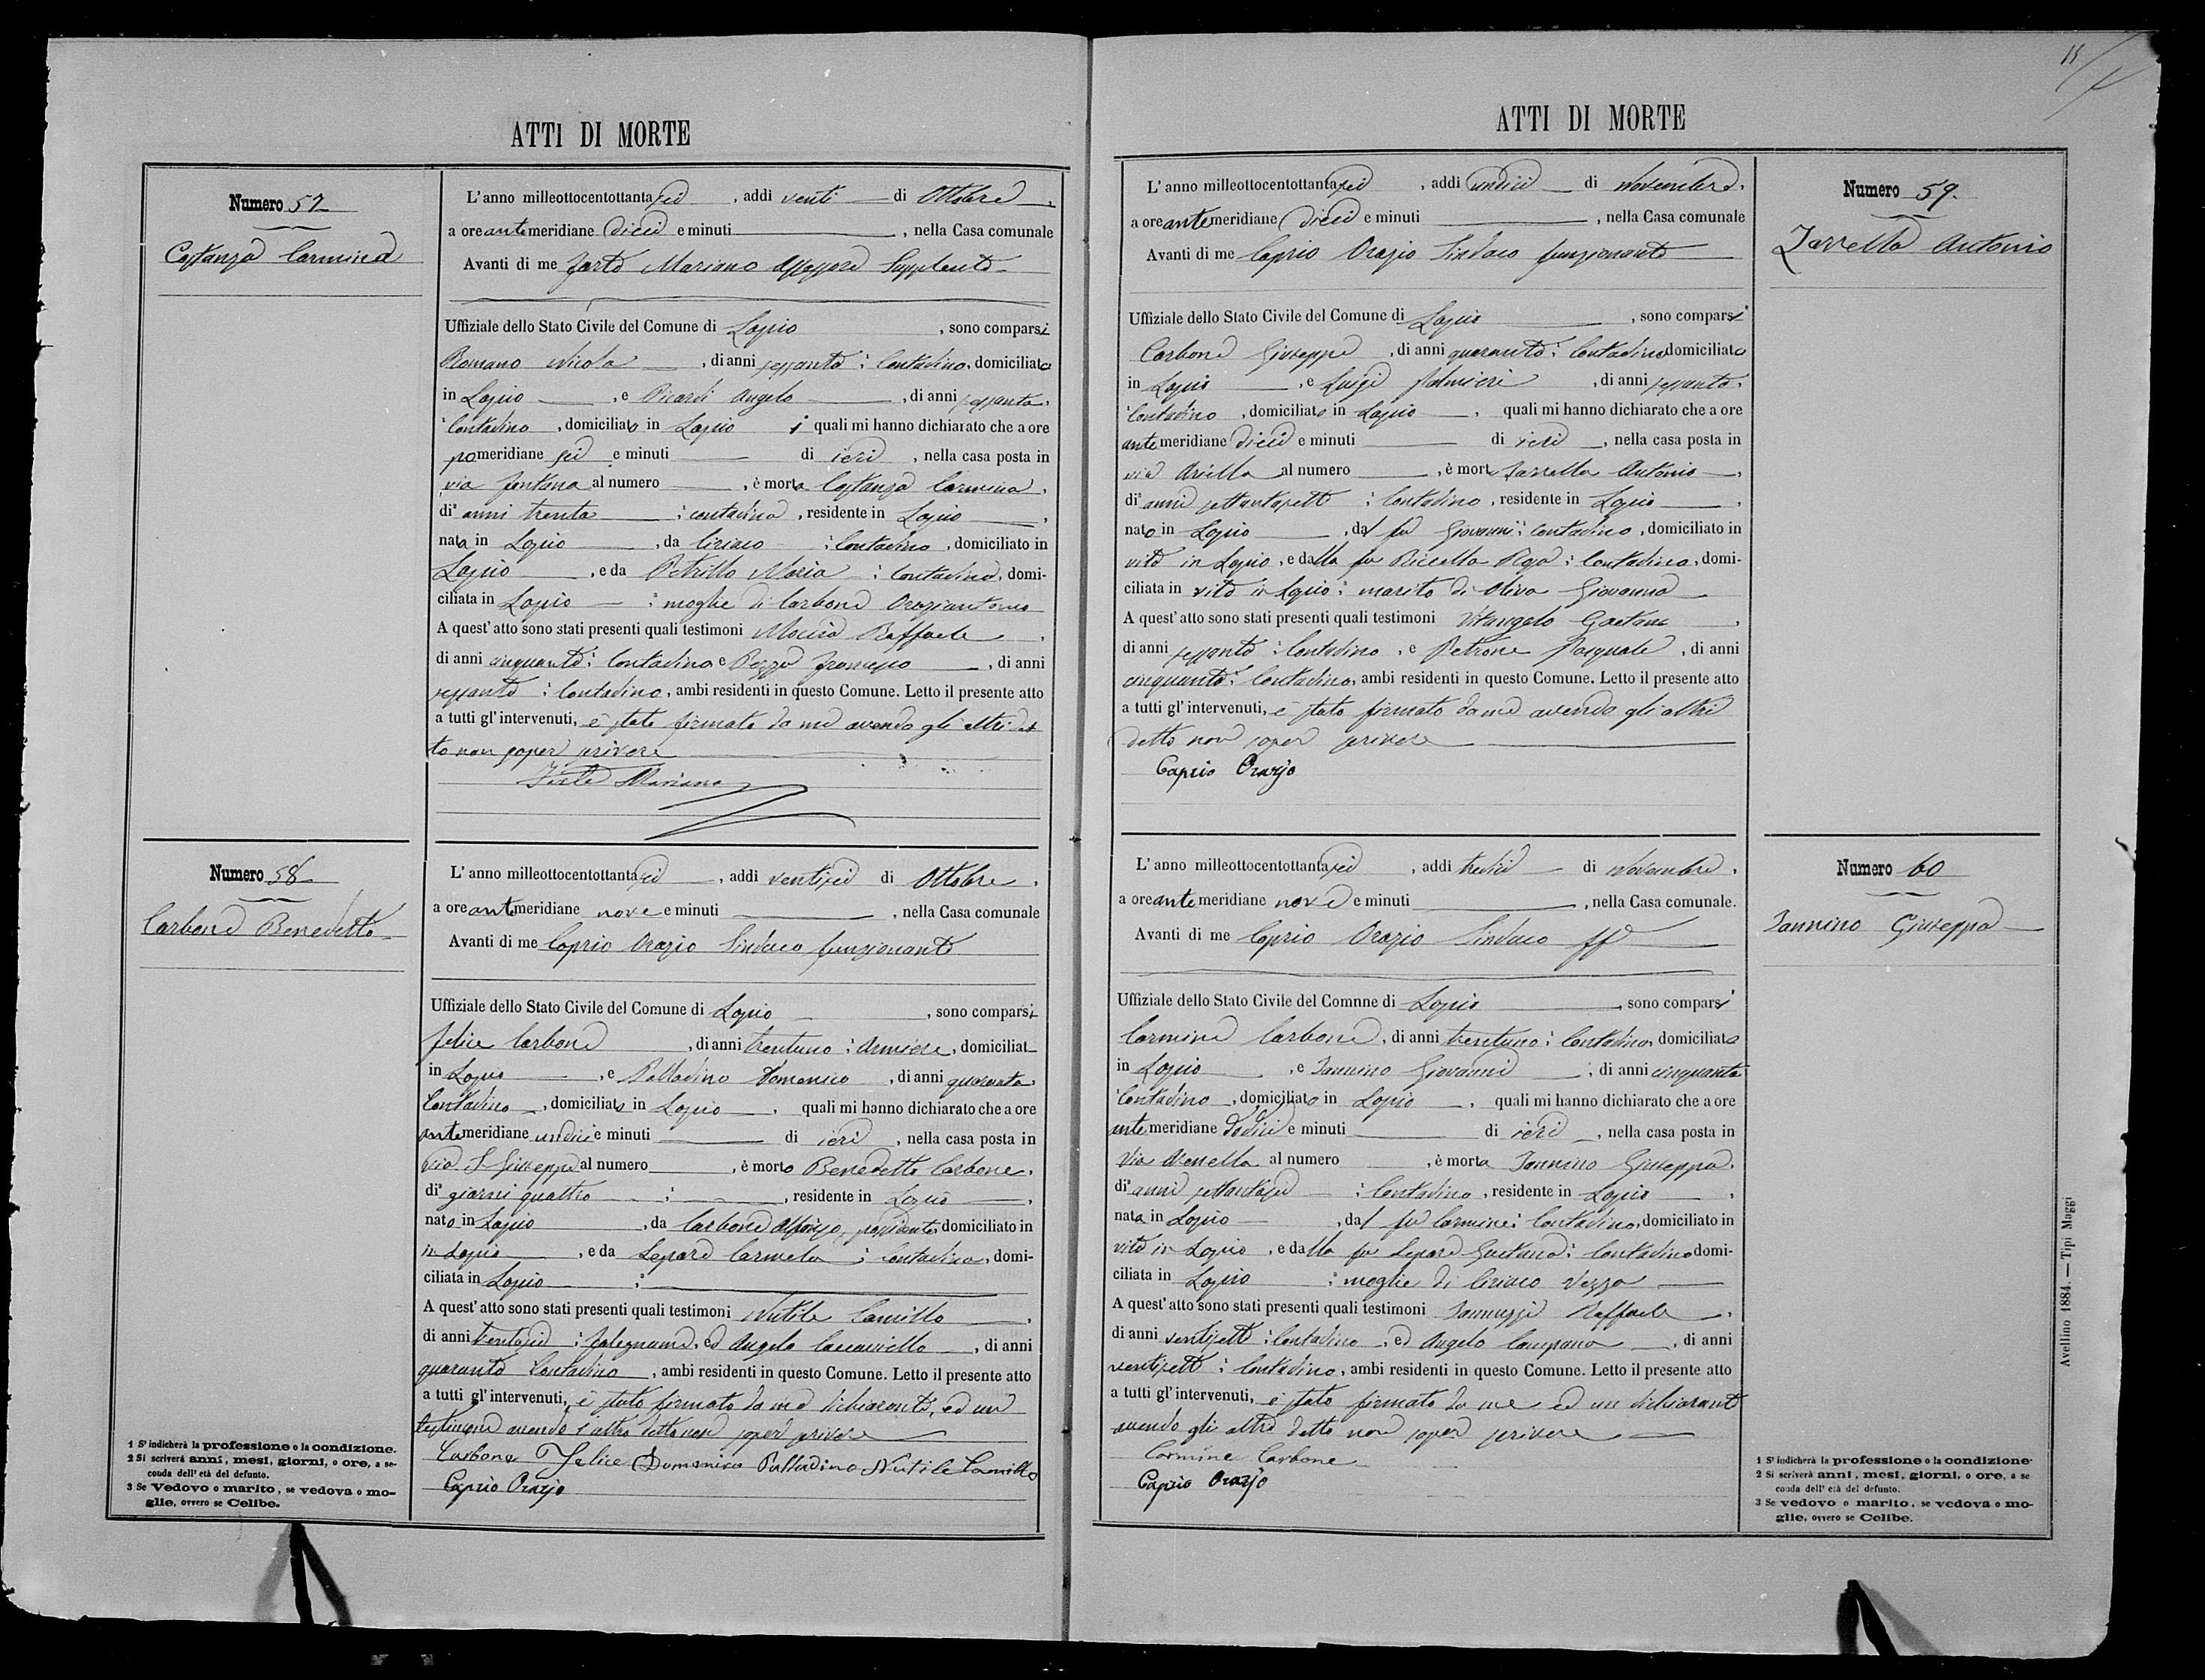 ATTI DI MORTE
Numero 57
Costanza Carmina
L'anno milleottocentottantasei, addì venti di Ottobre,
a ore antemeridiane dieci e minuti, nella Casa comunale
Avanti di me Forte Mariano Assessore Supplente
Uffiziale dello Stato Civile del Comune di Lapio, sono comparsi
Romano Nicola, di anni sessanta; Contadino, domiciliato
in Lapio, e Picardi Angelo, di anni sessanta,
Contadino, domiciliato in Lapio i quali mi hanno dichiarato che a ore
pomeridiane sei e minuti di ieri, nella casa posta in
via fontana al numero, è morta Costanza Carmina,
di anni trenta; contadina, residente in Lapio,
nata in Lapio, da Ciriaco; Contadino, domiciliato in
Lapio, e da Petrillo Maria; Contadina, domi-
ciliata in Lapio; moglie di Carbone Oraziantonio
A quest'atto sono stati presenti quali testimoni Moccia Raffaele,
di anni cinquanta; Contadino e Pezza Francesco, di anni
sessanta; Contadino, ambi residenti in questo Comune. Letto il presente atto
a tutti gl'intervenuti, è stato firmato da me avendo gli altri det
to non saper scrivere
Forte Mariano
Numero 58
Carbone Benedetto
L'anno milleottocentottantasei, addì ventisei di Ottobre,
a ore antemeridiane nove e minuti, nella Casa comunale
Avanti di me Caprio Orazio Sindaco funzionante
Uffiziale dello Stato Civile del Comune di Lapio, sono comparsi
Felice Carbone, di anni trentuno; Armiere, domiciliat
in Lapio, e Palladino Domenico, di anni quaranta,
Contadino, domiciliato in Lapio, quali mi hanno dichiarato che a ore
antemeridiane undici e minuti di ieri, nella casa posta in
Via S. Giuseppe al numero, è morto Benedetto Carbone,
di giorni quattro; residente in Lapio,
nato in Lapio, da Carbone Alfonso, possidente domiciliato in
in Lapio, e da Lepore Carmela; contadina, domi-
ciliata in Lapio;
A quest'atto sono stati presenti quali testimoni Nutile Camillo,
di anni trentasei; falegname, ed Angelo Caccaviello, di anni
quaranta Contadino, ambi residenti in questo Comune. Letto il presente atto
a tutti gl'intervenuti, è stato firmato da me dichiaranti, ed un
testimone avendo l'altro detto non saper scrivere
Carbone Felice Domenico Palladino Nutile Camillo
Caprio Orazio
1 S'indicherà la professione o la condizione.
2 Si scriverà anni, mesi, giorni, o ore, a se-
conda dell'età del defunto.
3 Se Vedovo o marito, se vedova o mo-
glie, ovvero se Celibe.
15
ATTI DI MORTE
Numero 59.
Zarrella Antonio
L'anno milleottocentottantasei, addì undici di Novembre,
a ore antemeridiane dieci e minuti, nella Casa comunale
Avanti di me Caprio Orazio Sindaco funzionante
Uffiziale dello Stato Civile del Comune di Lapio, sono comparsi
Carbone Giuseppe, di anni quaranta; Contadino domiciliato
in Lapio, e Luigi Palmieri, di anni sessanta,
Contadino, domiciliato in Lapio, quali mi hanno dichiarato che a ore
antemeridiane dieci e minuti di ieri, nella casa posta in
via Ariella al numero, è mort Zarrella Antonio,
di anni settantasette; Contadino, residente in Lapio,
nato in Lapio, dal fu Giovanni; contadino, domiciliato in
vita in Lapio, e dalla fu Piccella Rosa; Contadina, domi-
ciliata in vita in Lapio; marito di Oliva Giovanna
A quest'atto sono stati presenti quali testimoni Vitangelo Gaetano,
di anni sessanta; Contadino, e Petrone Pasquale, di anni
cinquanta; Contadino, ambi residenti in questo Comune. Letto il presente atto
a tutti gl'intervenuti, è stato firmato da me avendo gli altri
detto non saper scrivere
Caprio Orazio
Numero 60
Iannino Giuseppa
L'anno milleottocentottantasei, addì tredici di Novembre,
a ore antemeridiane nove e minuti, nella Casa comunale.
Avanti di me Caprio Orazio Sindaco ff
Uffiziale dello Stato Civile del Comnne di Lapio, sono comparsi
Carmine Carbone, di anni trentuno; Contadino, domiciliato
in Lapio, e Iannino Giovanni; di anni cinquanta
Contadino, domiciliato in Lapio, quali mi hanno dichiarato che a ore
antemeridiane dodici e minuti di ieri, nella casa posta in
Via Arenella al numero, è morta Iannino Giuseppa,
di anni settantasei; Contadina, residente in Lapio,
nata in Lapio, dal fu Carmine; Contadino, domiciliato in
vita in Lapio, e dalla fu Lepore Gaetana; Contadina domi-
ciliata in Lapio; moglie di Ciriaco Pezza
A quest'atto sono stati presenti quali testimoni Iannuzzi Raffaele,
di anni ventisette; Contadino, ed Angelo Campana, di anni
ventisette; Contadino, ambi residenti in questo Comune. Letto il presente atto
a tutti gl'intervenuti, è stato firmato da me ed un dichiarante
avendo gli altri detto non saper scrivere
Carmine Carbone
Caprio Orazio
1 S'indicherà la professione o la condizione
2 Si scriverà anni, mesi, giorni, o ore, a se
conda dell'età del defunto.
3 Se vedovo o marito, se vedova o mo-
glie, ovvero se Celibe.
Avellino 1884. — Tipi Maggi